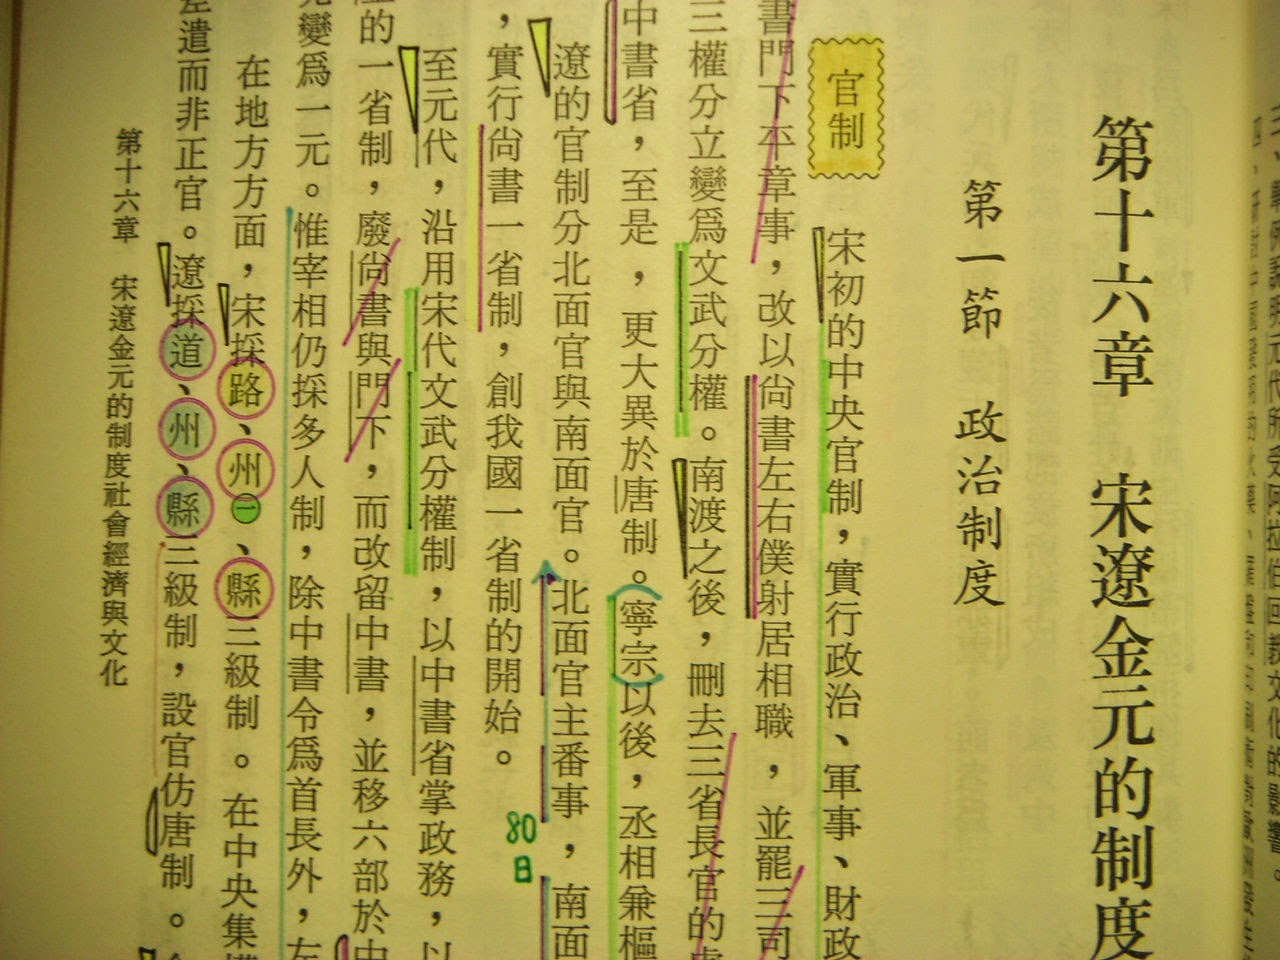 第十六章　宋遼金元的制度
第一節　政治制度
官制
宋初的中央官制，實行政治、軍事、財政
書門下平章事，改以尚書左右僕射居相職，並罷三司
三權分立變爲文武分權。南渡之後，刪去三省長官的
中書省，至是，更大異於唐制。寧宗以後，丞相兼樞
遼的官制分北面官與南面官。北面官主番事，南面
，實行尚書一省制，創我國一省制的開始。
80日
至元代，沿用宋代文武分權制，以中書省掌政務，以
的一省制，廢尚書與門下，而改留中書，並移六部於中
變爲一元。惟宰相仍採多人制，除中書令爲首長外，
在地方方面，宋採路、州㊀、縣三級制。在中央集
差遣而非正官。遼採道、州、縣三級制，設官仿唐制。
第十六章　宋遼金元的制度社會經濟與文化